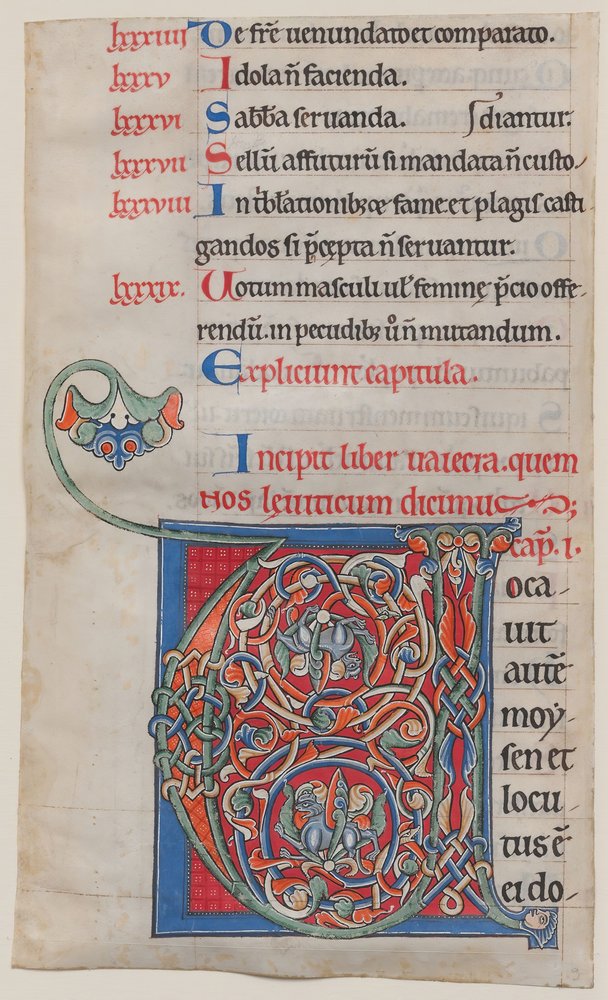 lxxxiiii De fr̄e uenundato et comparato.
lxxxv Idola n̄ facienda.
lxxxvi Sabb̄a seruanda. ſdiantur.
lxxxvii Sellū affuturū si mandata n̄ custo
lxxxviii In t'bl'ationibꝫ & fame et plagis casti
gandos si p̄cepta n̄ seruantur.
lxxxix. Uotum masculi ul' feminę p̄cio offe
rendū. in pecudibꝫ ů n̄ mutandum.
Expliciunt capitula.
Incipit liber uaiecra. quem
nos leuiticum dicimus;
cap̄. i.
Voca
uit
autē
moẏ
sen et
locu
tus ē
ei do
9